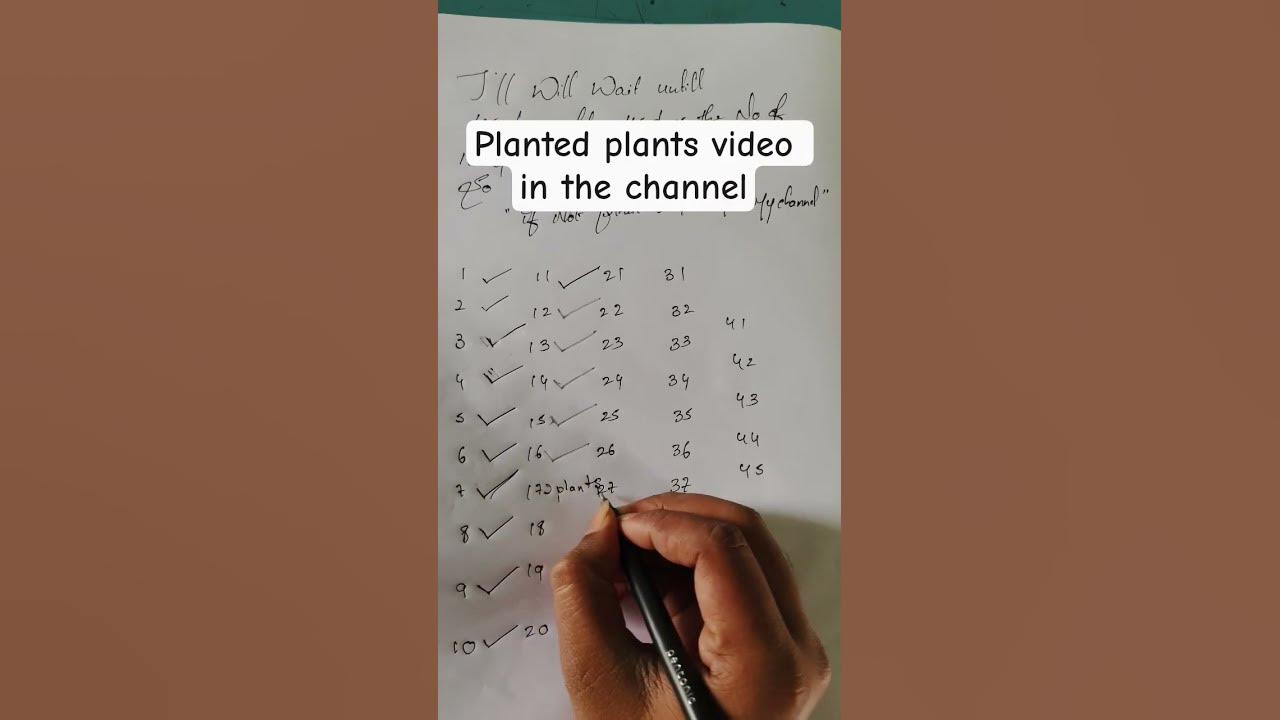 I'll Will Wait untill
the No of
Planted plants video
in the channel
"if Not My channel"
1 11 21 31
2 12 22 32
41
3 13 23 33
42
4 14 24 34
43
5 15 25 35
44
6 16 26 36
45
7 17 2 plants 27 37
8 18
9 19
10 20